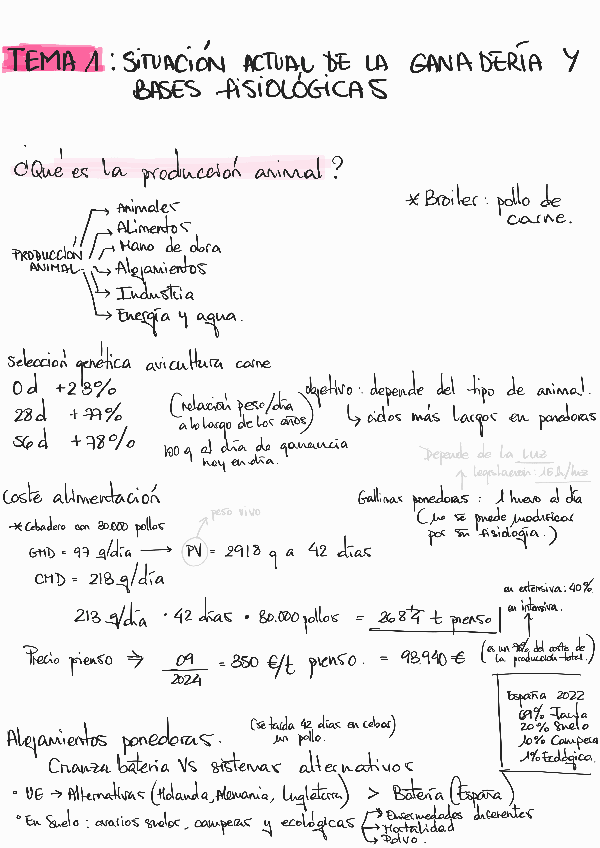 TEMA 1: SITUACIÓN ACTUAL DE LA GANADERÍA Y
BASES FISIOLÓGICAS
¿Qué es la producción animal?
* Broiler: pollo de
carne.
PRODUCCIÓN
ANIMAL
→ Animales
→ Alimentos
→ Mano de obra
→ Alojamientos
→ Industria
→ Energía y agua.
Selección genética avicultura carne
0d +23%
28d +77%
56d +78%
(relación peso/día
a lo largo de los años)
100 g al día de ganancia
hoy en día.
objetivo: depende del tipo de animal.
↳ ciclos más largos en ponedoras
Depende de la luz
↑ legislación: 15 h/luz
Gallinas ponedoras: 1 huevo al día
(no se puede modificar
por su fisiología.)
Coste alimentación
* Cebadero con 30.000 pollos
peso vivo
GMD = 97 g/día → PV = 2918 g a 42 días
CMD = 213 g/día
213 g/día · 42 días · 30.000 pollos = 268'4 t pienso
en extensiva: 40%
en intensiva.
(es un 70% del coste de
la producción total.)
Precio pienso ⇒ 09/2024 = 350 €/t pienso. = 93.940 €
España 2022
69% Jaula
20% Suelo
10% Campera
1% Ecológica.
Alojamientos ponedoras.
(se tarda 42 días en cebar
un pollo.
Crianza batería Vs sistemas alternativos
° UE → Alternativas (Holanda, Alemania, Inglaterra) > Batería (España)
° En Suelo: avarios suelos, camperas y ecológicas
→ Enfermedades diferentes
→ Mortalidad
→ Polvo.